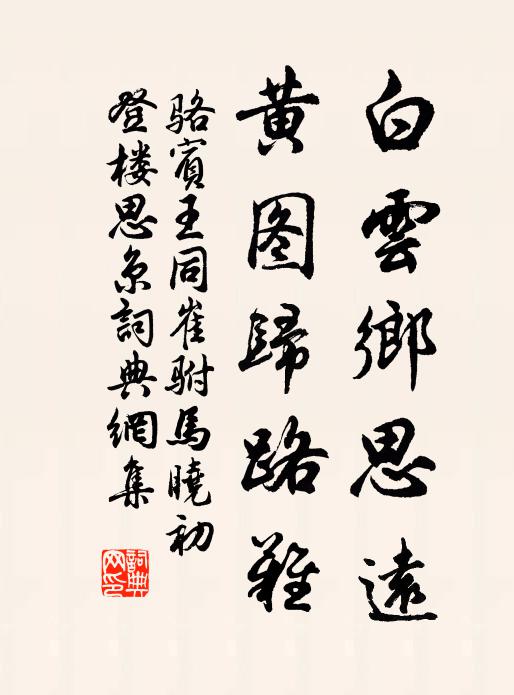 白雲鄉思遠
黃图歸路難
駱賓王同崔駙馬曉初
登楼思京詞典網集
詞典網印